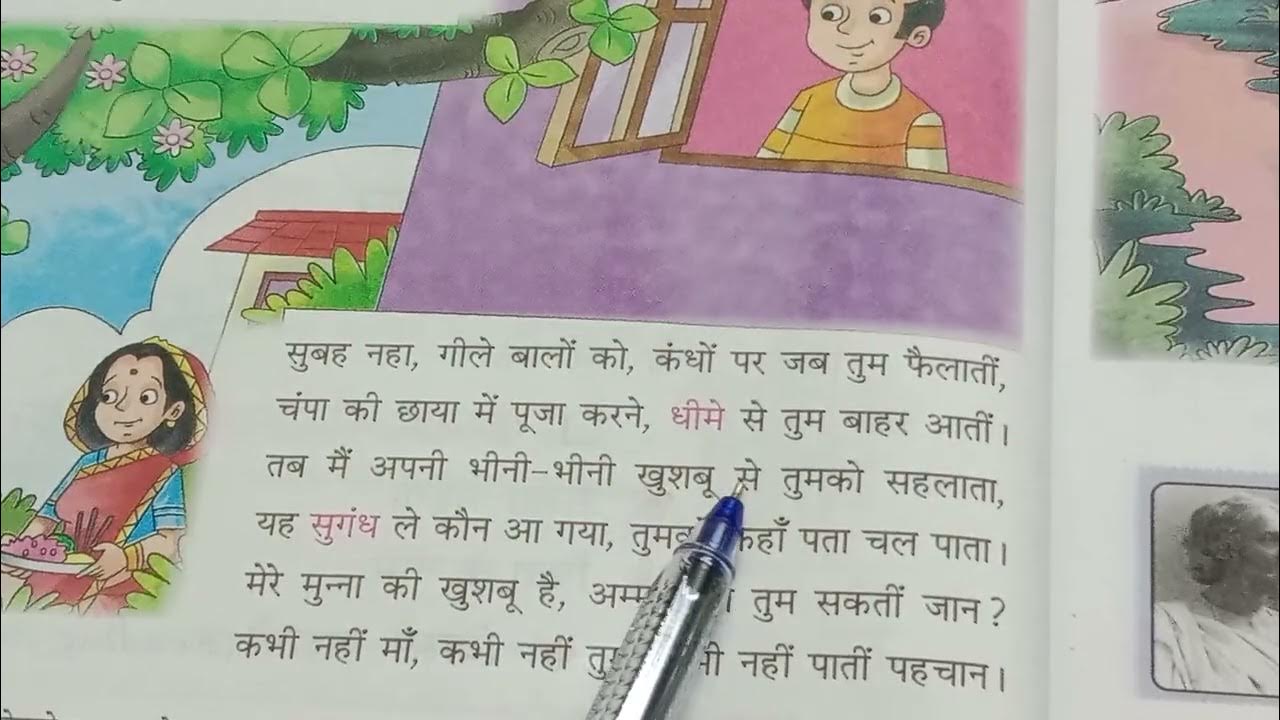 सुबह नहा, गीले बालों को, कंधों पर जब तुम फैलातीं,
चंपा की छाया में पूजा करने, धीमे से तुम बाहर आतीं।
तब मैं अपनी भीनी-भीनी खुशबू से तुमको सहलाता,
यह सुगंध ले कौन आ गया, कहाँ पता चल पाता।
मेरे मुन्ना की खुशबू है, तुम सकतीं जान?
कभी नहीं माँ, कभी नहीं नहीं पातीं पहचान।